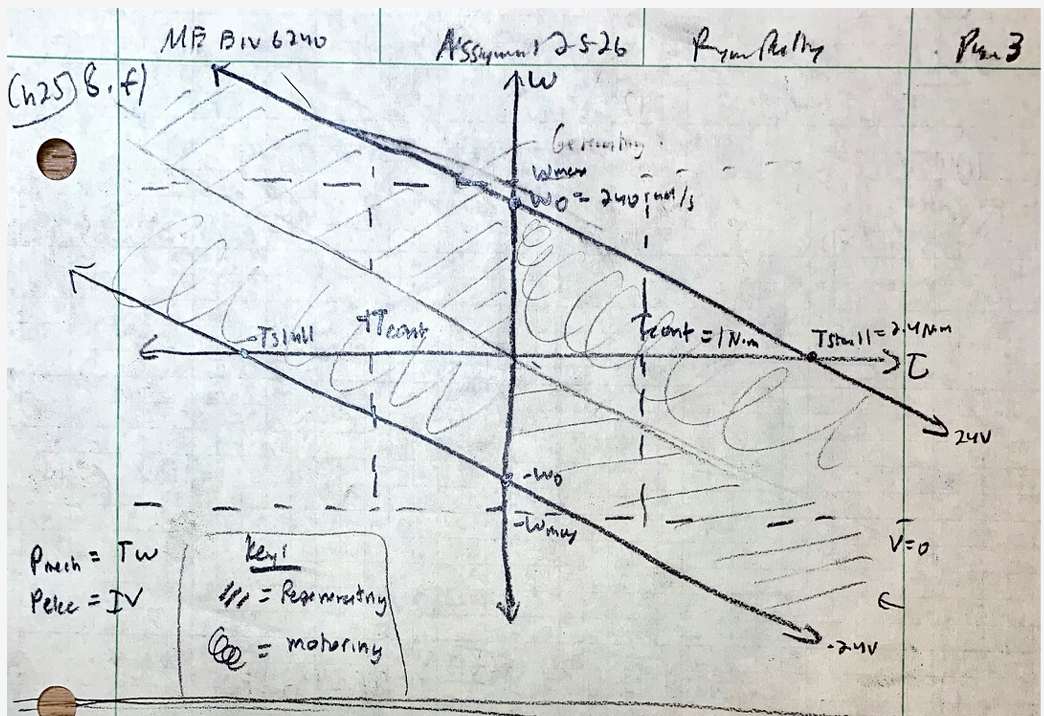 ME BIV 6240
Assignment 2-5-26
Page 3
Ch25) 8. f)
ω
Generating
ωmax
ω0 = 240 rad/s
-Tstall
+Tcont
Tcont = 1 N·m
Tstall = 2.4 N·m
τ
24V
-ω0
-ωmax
V=0
Pmech = Tω
Pelec = IV
Key:
= Regenerating
= motoring
-24V